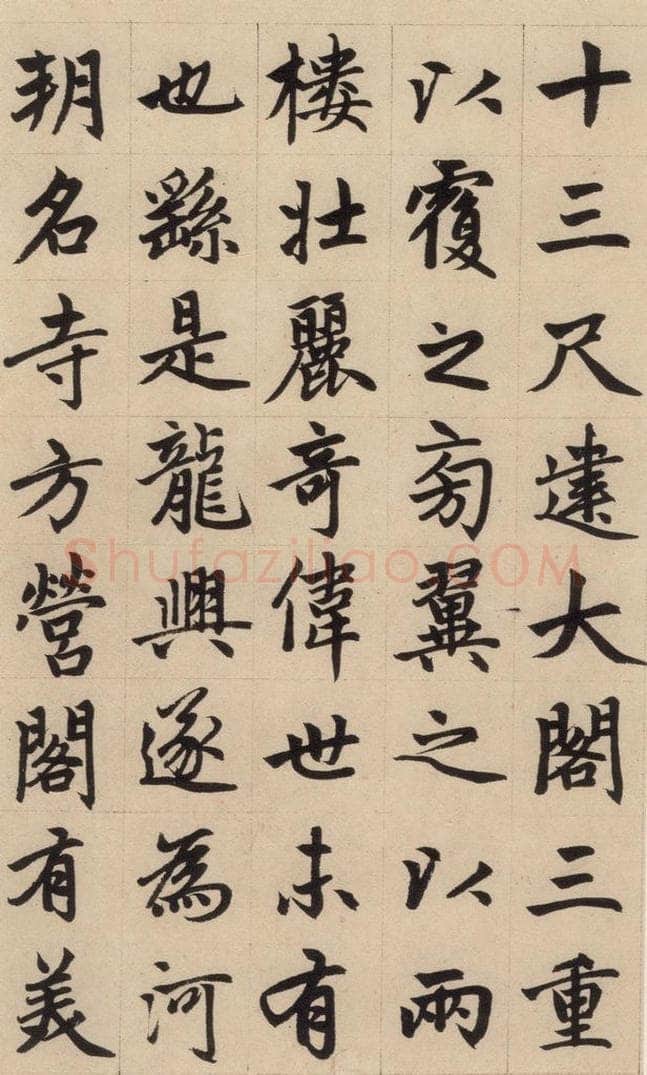 十三尺建大閣三重
以覆之旁翼之以兩
樓壯麗奇偉世未有
也繇是龍興遂為河
朔名寺方營閣有美
Shufaziliao.COM